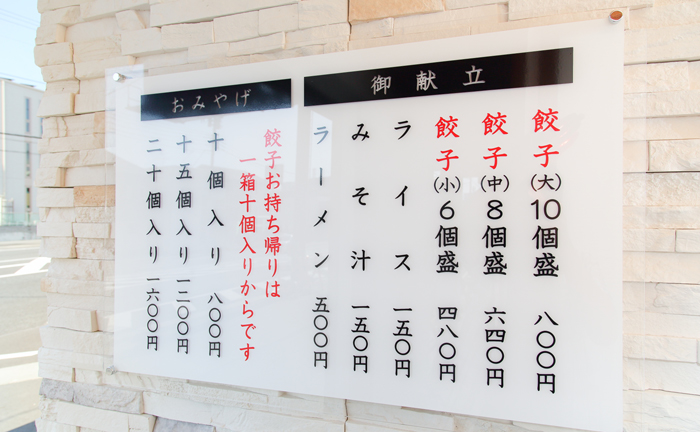 御献立
餃子(大)10個盛 八〇〇円
餃子(中)8個盛 六四〇円
餃子(小)6個盛 四八〇円
ライス 一五〇円
みそ汁 一五〇円
ラーメン 五〇〇円
おみやげ
餃子お持ち帰りは
一箱十個入りからです
十個入り 八〇〇円
十五個入り 一二〇〇円
二十個入り 一六〇〇円